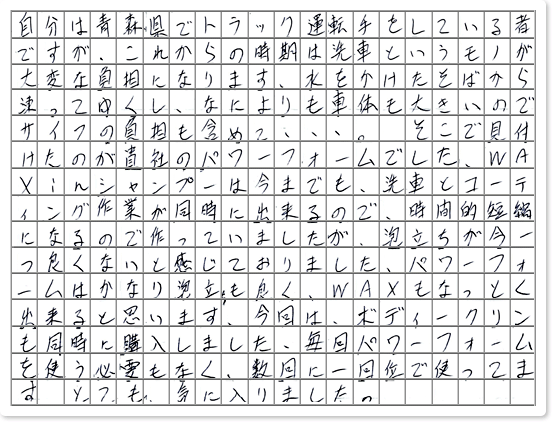 自分は青森県でトラック運転手をしている者
ですが、これからの時期は洗車というモノが
大変な負担になります、水をかけたそばから
凍ってゆくし、なによりも車体も大きいので
サイフの負担も含めて・・・。 そこで見付
けたのが貴社のパワーフォームでした、WA
Xinシャンプーは今までも、洗車とコーテ
ィング作業が同時に出来るので、時間的短縮
になるので作っていましたが、泡立ちが今一
つ良くないと感じておりました、パワーフォ
ームはかなり泡立ちも良く、WAXもなっとく
出来ると思います、今回は、ボディークリン
も同時に購入しました、毎回パワーフォーム
を使う必要もなく、数回に一回位で使ってま
す とても、気に入りました。